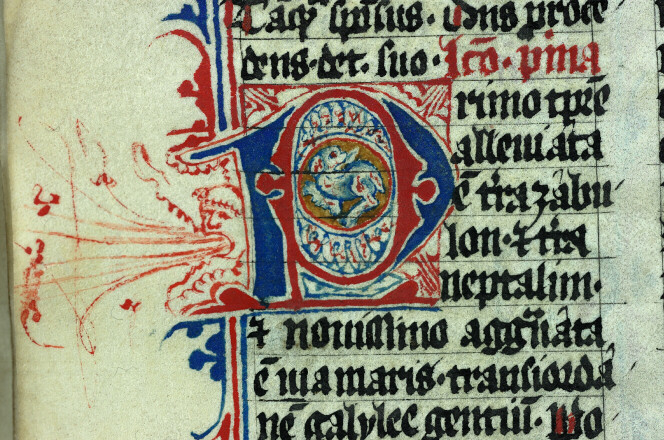 Tāq̄ȝ sp̄sus. Dn̄s proce
dens. det. suo. lc̄o. pīna
Primo tp̄re
alleuiata
ē t̄ra zabu
lon. ⁊ t̄ra
neptalim.
⁊ nouissimo aggͣuata
ē uia maris. transiordā
nē galylee gentiū.